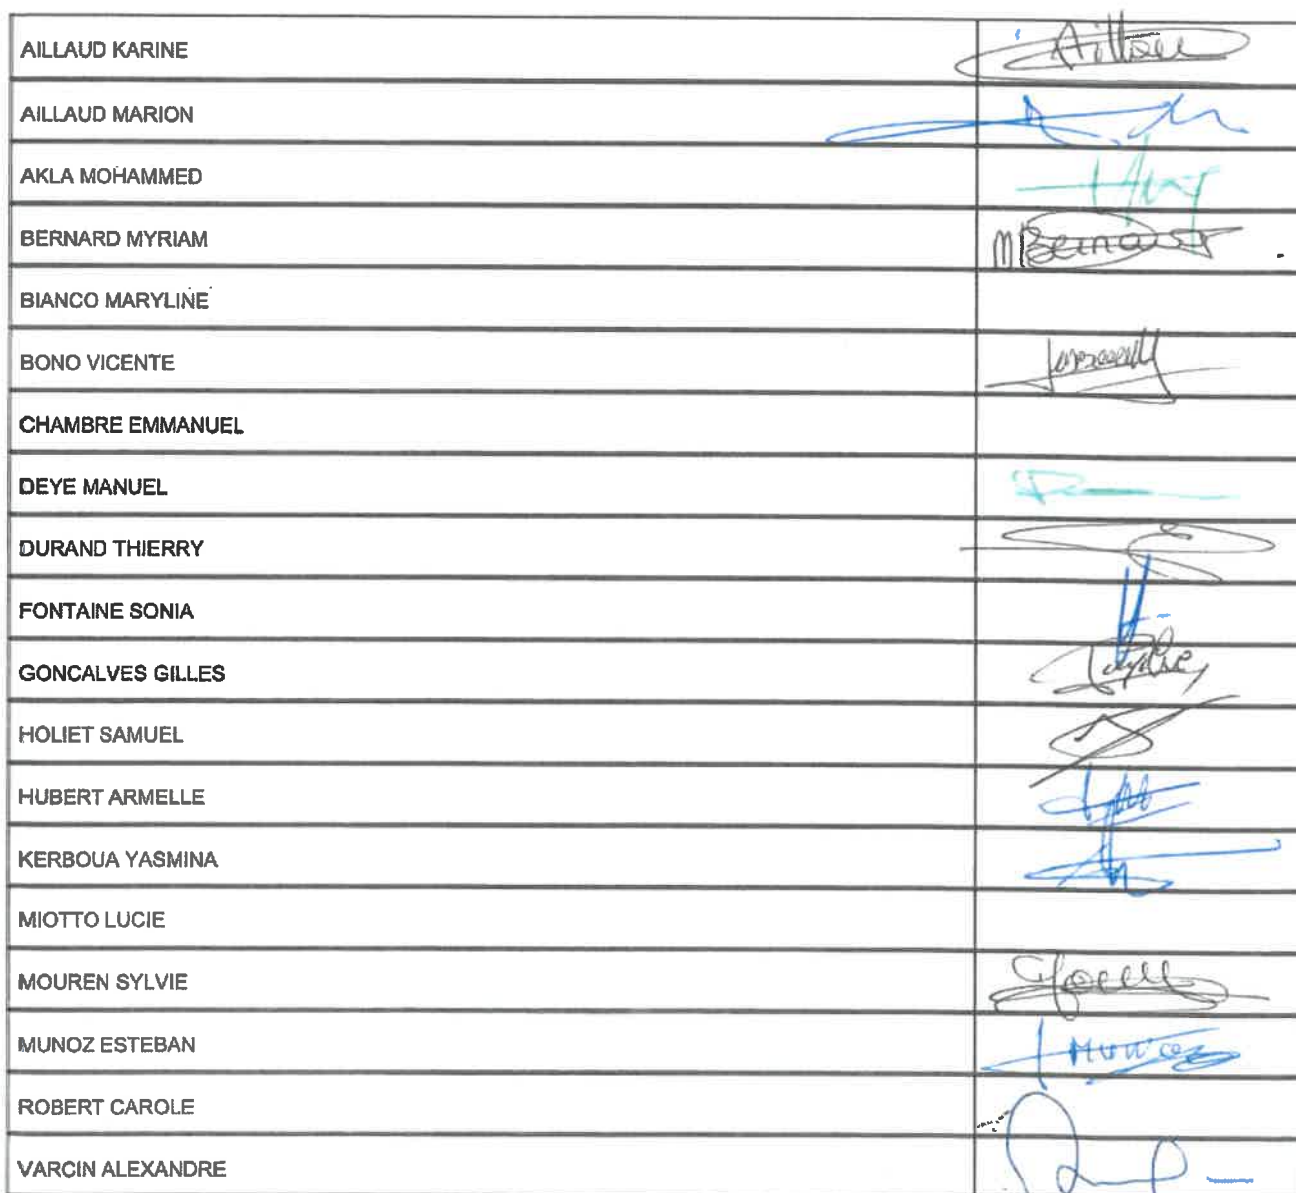 AILLAUD KARINE
AILLAUD MARION
AKLA MOHAMMED
BERNARD MYRIAM M Bernard
BIANCO MARYLINE
BONO VICENTE
CHAMBRE EMMANUEL
DEYE MANUEL
DURAND THIERRY
FONTAINE SONIA
GONCALVES GILLES
HOLIET SAMUEL
HUBERT ARMELLE
KERBOUA YASMINA
MIOTTO LUCIE
MOUREN SYLVIE
MUNOZ ESTEBAN
ROBERT CAROLE
VARCIN ALEXANDRE